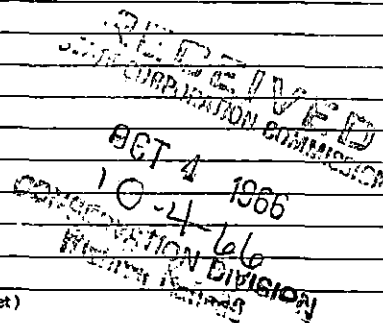 RECEIVED
STATE CORPORATION COMMISSION
OCT 4 1966
10-4-66
CONSERVATION DIVISION
Wichita, Kansas
et)